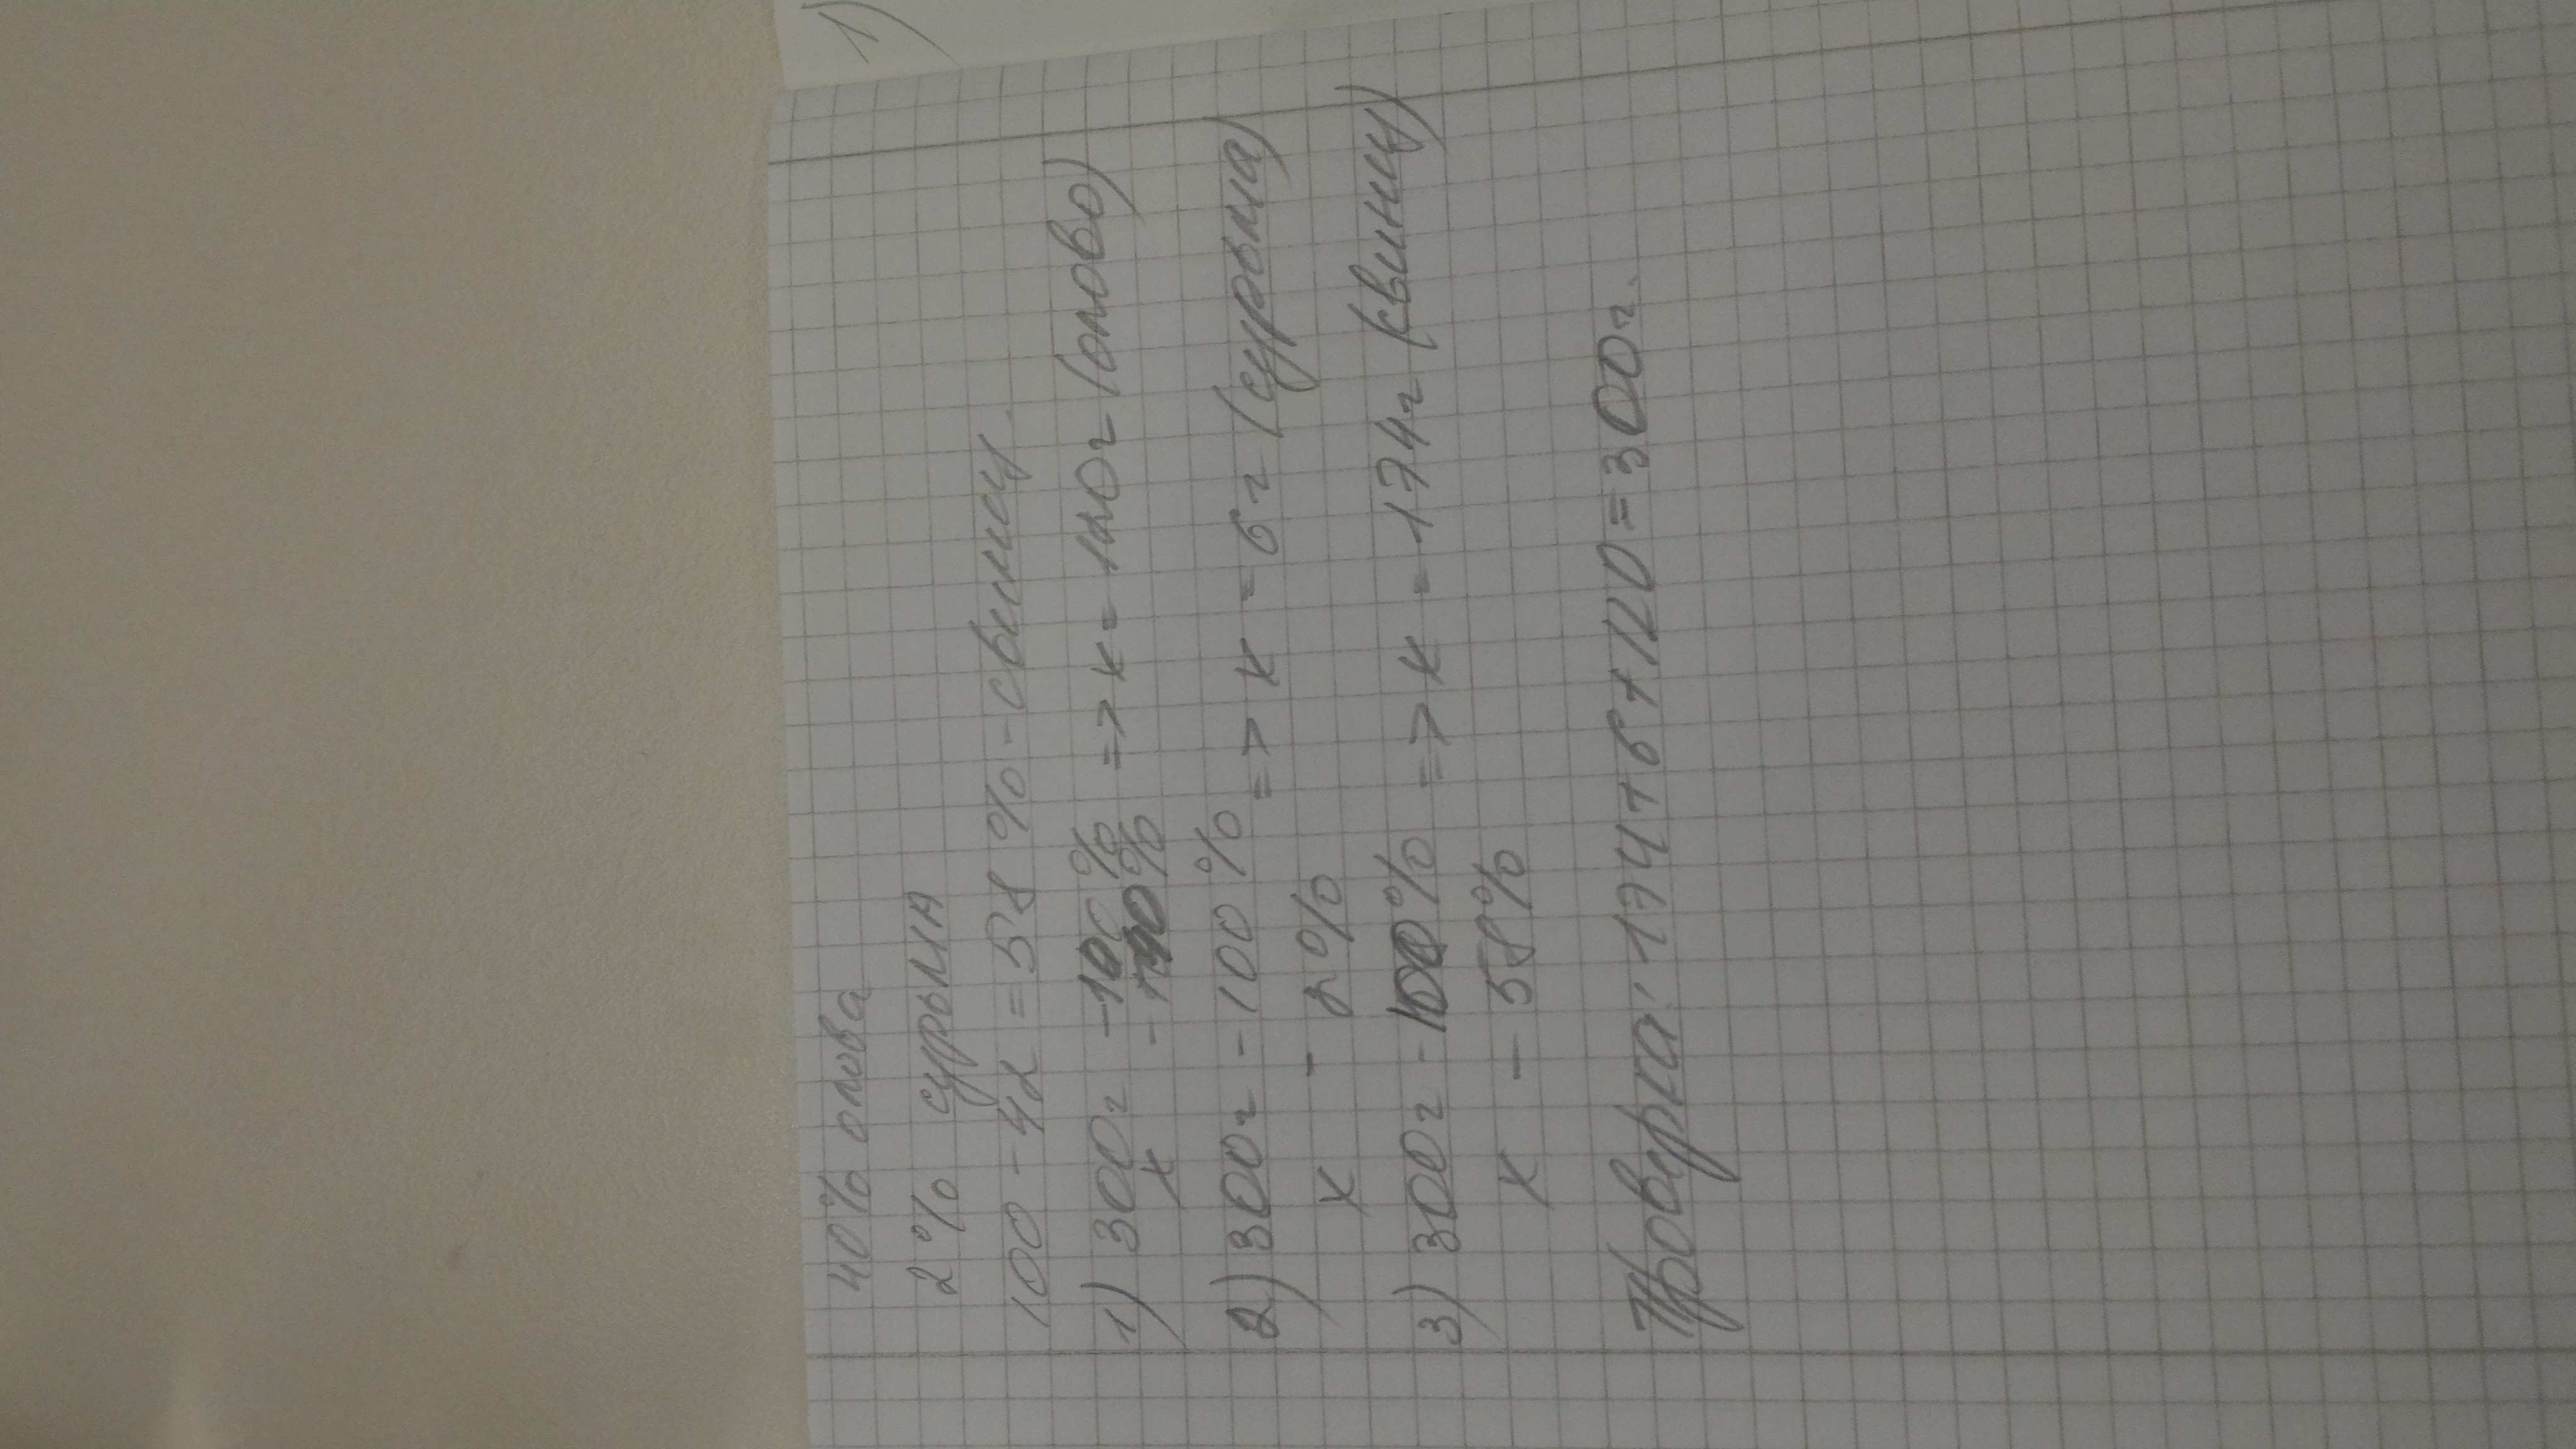 1)
40% олова
2% сурьма
100 - 42 = 58 % - свинец.
1) 300г - 100% => х = 120г (олово)
х - 40%
2) 300г - 100% => х = 6г (сурьма)
х - 2%
3) 300г - 100% => х = 174г (свинец)
х - 58%
Проверка: 174 + 6 + 120 = 300г.